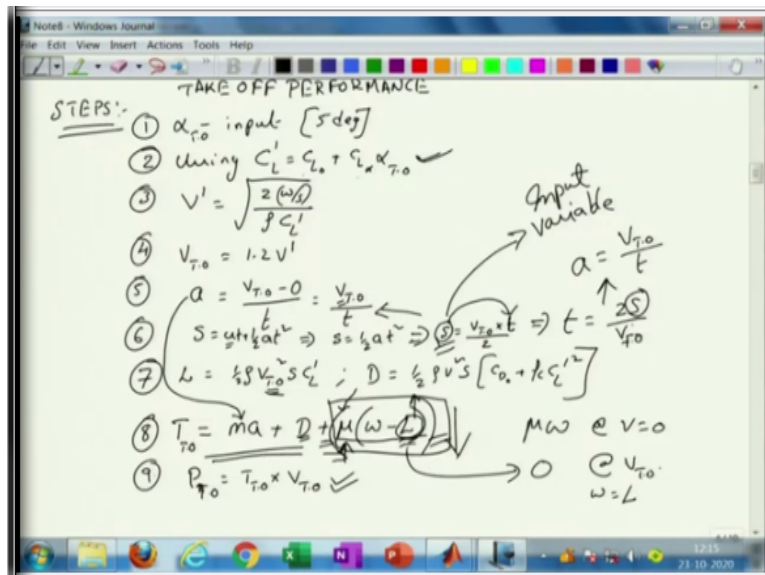 Note8 - Windows Journal
File Edit View Insert Actions Tools Help
TAKE OFF PERFORMANCE
STEPS:-
① α_T.O - input [5 deg]
② Using C_L' = C_L₀ + C_Lα α_T.O ✓
③ V' = √(2 (W/S) / ρ C_L')
④ V_T.O = 1.2 V'
⑤ a = (V_T.O - 0)/t = V_T.O/t
⑥ S = ut + ½at² ⇒ s = ½at² ⇒ S = (V_T.O × t)/2 ⇒ t = 2S/V_TO
Input
variable
a = V_T.O/t
⑦ L = ½ρV_TO² S C_L' ; D = ½ρv²S [C_D₀ + k C_L'²]
⑧ T_TO = ma + D + μ(W - L)
μW @ V=0
⑨ P_TO = T_T.O × V_T.O ✓
0 @ V_TO.
W = L
12:15
23-10-2020